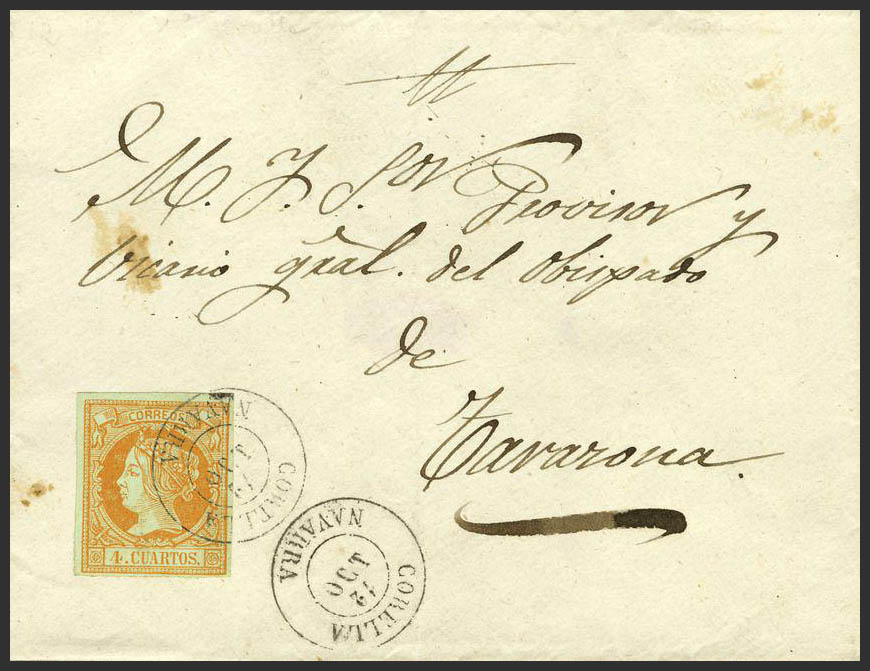 M. Y. S.or Provisor y
Vicario gral. del Obispado
de
Tarazona.
CORREOS
4. CUARTOS.
NAVARRA
OCT
CORELLA
NAVARRA
OCT
CORELLA